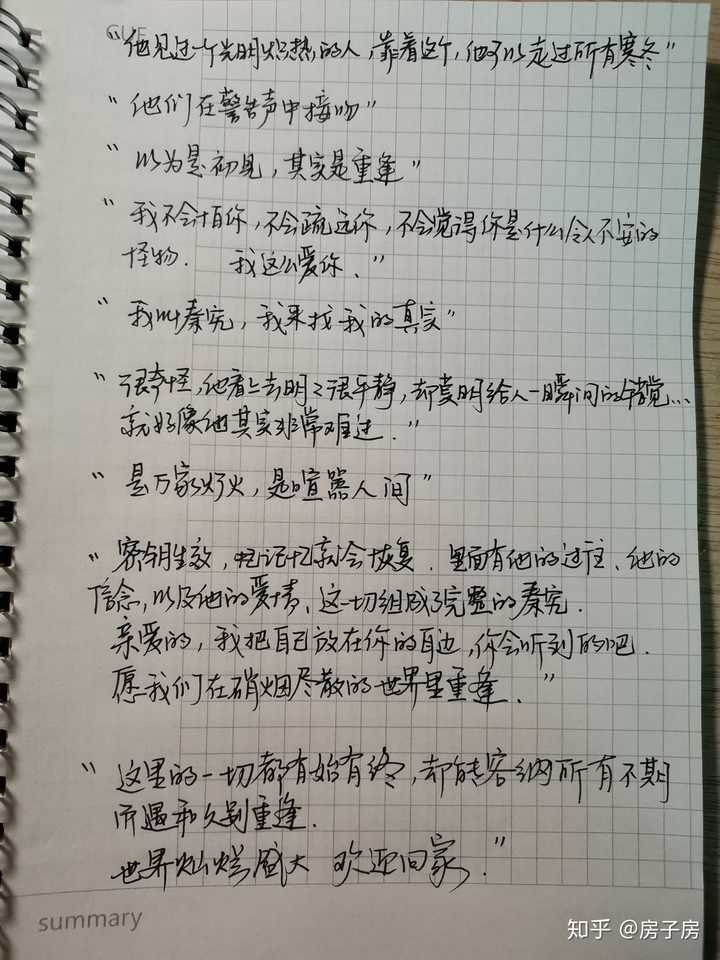 CUE
“他见过一个光明炽热的人，靠着这个，他可以走过所有寒冬”
“他们在警告声中接吻”
“以为是初见，其实是重逢”
“我不会怕你，不会疏远你，不会觉得你是什么令人不安的
怪物． 我这么爱你．”
“我叫秦究，我来找我的真实”
“很奇怪，他看上去明明很平静，却莫明给人一瞬间的错觉…
就好像他其实非常难过．”
“是万家灯火，是喧嚣人间”
“密钥生效，记忆就会恢复．里面有他的过往、他的
信念，以及他的爱情、这一切组成了完整的秦究．
亲爱的，我把自己放在你的耳边，你会听到的吧．
愿我们在硝烟尽散的世界里重逢．”
“这里的一切都有始有终，却能容纳所有不期
而遇和久别重逢．
世界灿烂盛大 欢迎回家．”
summary
知乎 @房子房